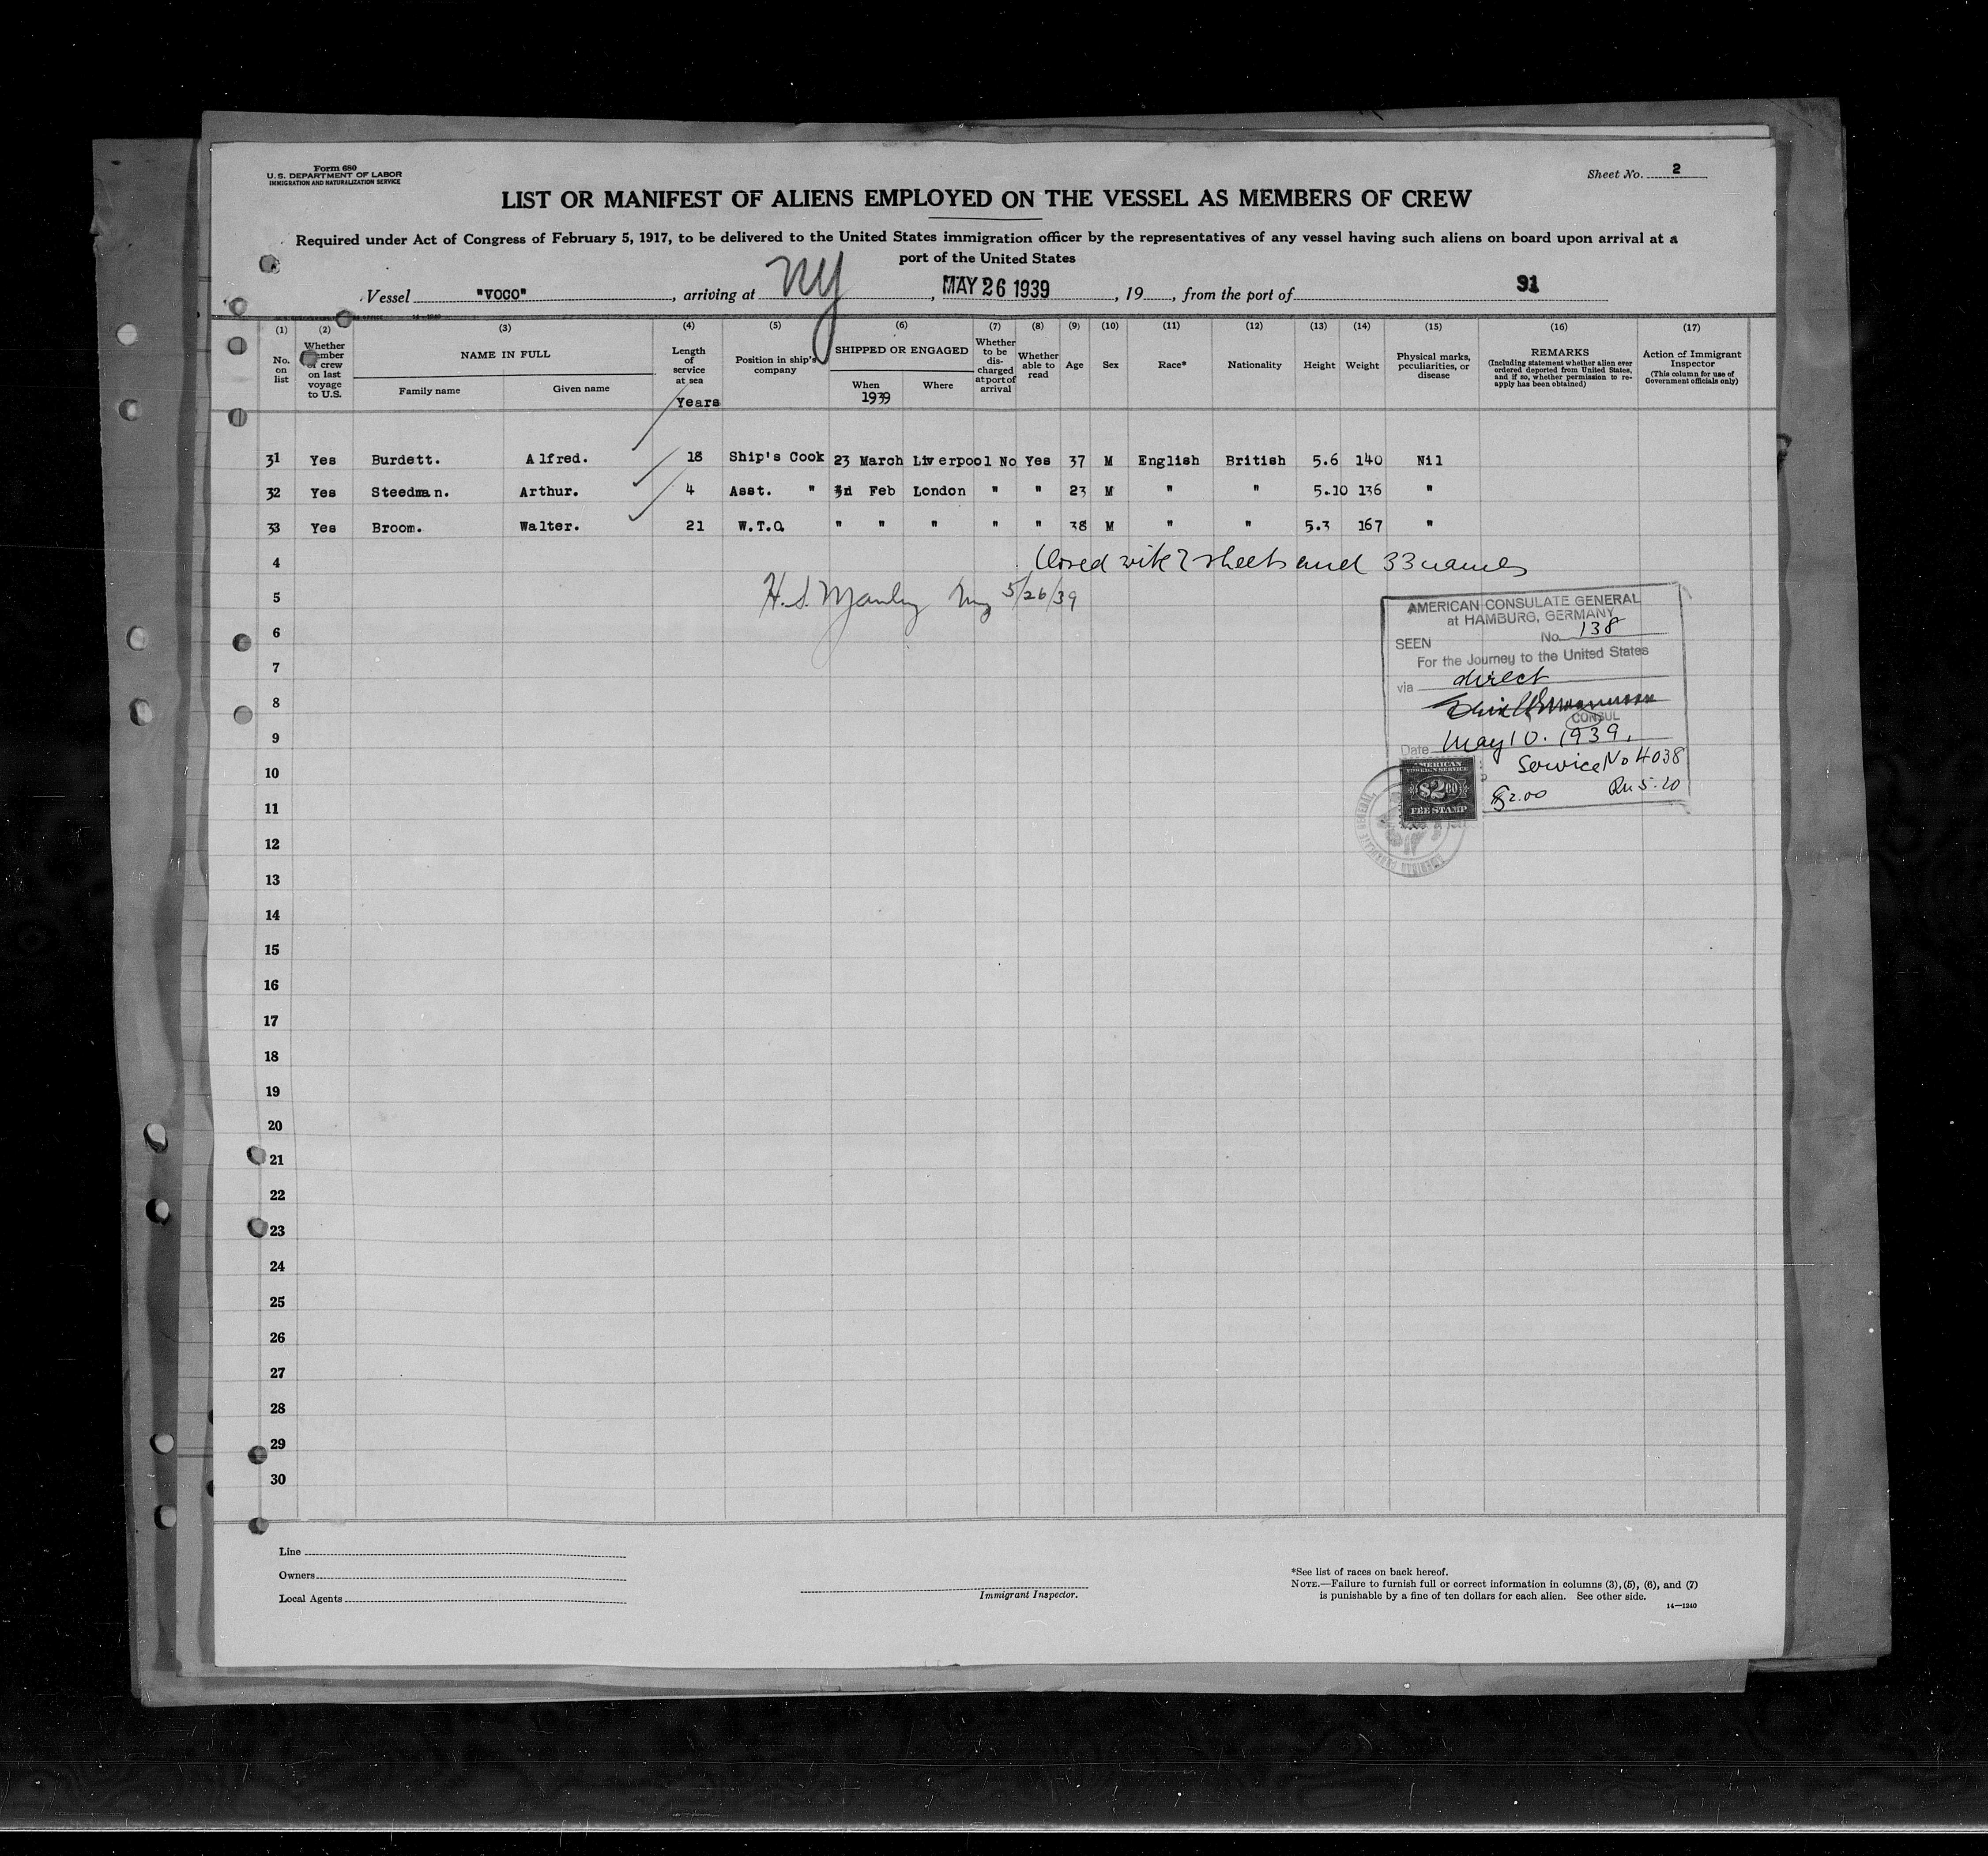 Form 680
U.S. DEPARTMENT OF LABOR
IMMIGRATION AND NATURALIZATION SERVICE
Sheet No. 2
LIST OR MANIFEST OF ALIENS EMPLOYED ON THE VESSEL AS MEMBERS OF CREW
Required under Act of Congress of February 5, 1917, to be delivered to the United States immigration officer by the representatives of any vessel having such aliens on board upon arrival at a
port of the United States
Vessel "VOCO", arriving at NY, MAY 26 1939, 19, from the port of 91
(1) (2) (3) (4) (5) (6) (7) (8) (9) (10) (11) (12) (13) (14) (15) (16) (17)
No. on list
Whether member of crew on last voyage to U.S.
NAME IN FULL
Family name
Given name
Length of service at sea
Years
Position in ship's company
SHIPPED OR ENGAGED
When
1939
Where
Whether to be discharged at port of arrival
Whether able to read
Age
Sex
Race*
Nationality
Height
Weight
Physical marks, peculiarities, or disease
REMARKS
(Including statement whether alien ever ordered deported from United States, and if so, whether permission to reapply has been obtained)
Action of Immigrant Inspector
(This column for use of Government officials only)
31 Yes Burdett. Alfred. 18 Ship's Cook 23 March Liverpool No Yes 37 M English British 5.6 140 Nil
32 Yes Steedman. Arthur. 4 Asst. " Feb London " " 23 M " " 5.10 136 "
33 Yes Broom. Walter. 21 W.T.O. " " " " " 38 M " " 5.3 167 "
4 Closed with 2 sheets and 33 names
5 H.S. Manley 5/26/39
6
7
8
9
10
11
12
13
14
15
16
17
18
19
20
21
22
23
24
25
26
27
28
29
30
AMERICAN CONSULATE GENERAL
at HAMBURG, GERMANY
SEEN No. 138
For the Journey to the United States
via direct
CONSUL
Date May 10. 1939.
Service No 4038
$2.00 Rm 5.20
AMERICAN
FOREIGN SERVICE
$2.00
FEE STAMP
AMERICAN CONSULATE GENERAL
Line
Owners
Local Agents
Immigrant Inspector.
*See list of races on back hereof.
NOTE.—Failure to furnish full or correct information in columns (3), (5), (6), and (7)
is punishable by a fine of ten dollars for each alien. See other side.
14—1240